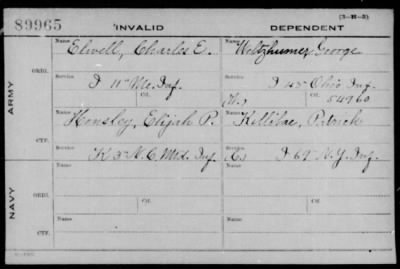 89965 INVALID DEPENDENT (3-H-3)
Name Name
Elwell, Charles E. Weltzhumer, George
ARMY
ORIG.
Service Service
D 11" Me. Inf. D 45" Ohio Inf.
Ctf.
54960
Name Name
Hensley, Elijah P. Killilae, Patrick
CTF.
Service Service
K 3" N.C. Mtd. Inf. D 69" N.Y. Inf.
NAVY
Name Name
ORIG.
Service Ctf. Service Ctf.
Name Name
CTF.
Service Service